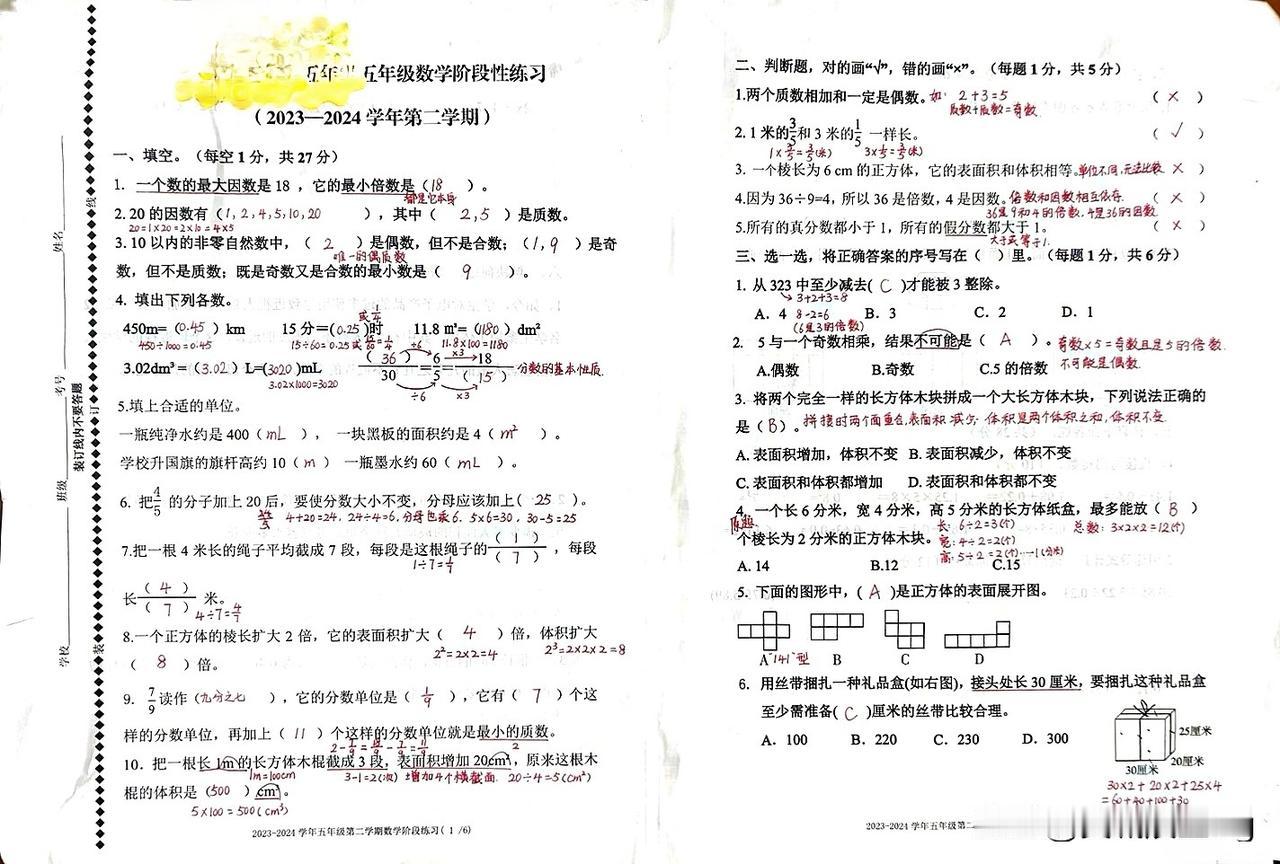 五年级数学阶段性练习
(2023—2024 学年第二学期)
学校 班级 考号 姓名
装订线内不要答题
装 订 线
一、填空。(每空 1 分,共 27 分)
1. 一个数的最大因数是 18 ,它的最小倍数是(18 )。
都是它本身
2. 20 的因数有(1,2,4,5,10,20 ),其中( 2,5 )是质数。
20=1×20=2×10=4×5
3. 10 以内的非零自然数中,( 2 )是偶数,但不是合数;(1,9 )是奇
唯一的偶质数
数,但不是质数;既是奇数又是合数的最小数是( 9 )。
4. 填出下列各数。
或1/4
450m=(0.45 )km 15 分=(0.25 )时 11.8 ㎡=(1180 )dm²
450÷1000=0.45 15÷60=0.25或15/60=1/4 11.8×100=1180
3.02dm³=(3.02 )L=(3020 )mL (36)/30=6/5=18/(15) 分数的基本性质
3.02×1000=3020 ÷6 ×3 ÷6 ×3
5.填上合适的单位。
一瓶纯净水约是 400( mL ), 一块黑板的面积约是 4( m² )。
学校升国旗的旗杆高约 10( m ) 一瓶墨水约 60( mL )。
6. 把4/5 的分子加上 20 后,要使分数大小不变,分母应该加上( 25 )。
4+20=24, 24÷4=6,分母也乘6. 5×6=30, 30-5=25
7.把一根 4 米长的绳子平均截成 7 段,每段是这根绳子的( 1 )/( 7 ),每段
1÷7=1/7
长( 4 )/( 7 ) 米。
4÷7=4/7
8.一个正方体的棱长扩大 2 倍,它的表面积扩大( 4 )倍,体积扩大
2²=2×2=4 2³=2×2×2=8
( 8 )倍。
9. 7/9读作(九分之七 ),它的分数单位是( 1/9 ),它有( 7 )个这
样的分数单位,再加上( 11 )个这样的分数单位就是最小的质数。
2-7/9=18/9-7/9=11/9 2
10. 把一根长 1m 的长方体木棍截成 3 段,表面积增加 20cm²,原来这根木
1m=100cm 3-1=2(次) 增加4个横截面. 20÷4=5(cm²)
棍的体积是(500 )cm³。
5×100=500(cm³)
2023-2024 学年五年级第二学期数学阶段练习( 1 /6)
二、判断题,对的画“√”,错的画“×”。(每题 1 分,共 5 分)
1.两个质数相加和一定是偶数。如: 2+3=5 ( × )
质数+质数=奇数
2. 1 米的3/5和 3 米的1/5 一样长。 ( √ )
1×3/5=3/5(米) 3×1/5=3/5(米)
3. 一个棱长为 6 cm 的正方体,它的表面积和体积相等。单位不同,无法比较 ( × )
4.因为 36÷9=4,所以 36 是倍数,4 是因数。倍数和因数相互依存. ( × )
36是9和4的倍数,4是36的因数
5.所有的真分数都小于 1,所有的假分数都大于 1。 ( × )
大于或等于1.
三、选一选,将正确答案的序号写在( )里。(每题 1 分,共 6 分)
1. 从 323 中至少减去( C )才能被 3 整除。
3+2+3=8
A. 4 B. 3 C. 2 D. 1
8-2=6
(6是3的倍数)
2. 5 与一个奇数相乘,结果不可能是( A )。奇数×5=奇数且是5的倍数.
A.偶数 B.奇数 C.5 的倍数 不可能是偶数.
3. 将两个完全一样的长方体木块拼成一个大长方体木块,下列说法正确的
是( B )。拼接时两个面重合,表面积减少.体积是两个体积之和,体积不变.
A. 表面积增加,体积不变 B. 表面积减少,体积不变
C. 表面积和体积都增加 D. 表面积和体积都不变
4. 一个长 6 分米,宽 4 分米,高 5 分米的长方体纸盒,最多能放( B )
长: 6÷2=3(个) 总数: 3×2×2=12(个)
个棱长为 2 分米的正方体木块。宽: 4÷2=2(个)
高: 5÷2=2(个)……1(分米)
A. 14 B.12 C.15
5. 下面的图形中,( A )是正方体的表面展开图。
A “141”型 B C D
6. 用丝带捆扎一种礼品盒(如右图),接头处长 30 厘米,要捆扎这种礼品盒
至少需准备( C )厘米的丝带比较合理。
A. 100 B. 220 C. 230 D. 300
25厘米
20厘米
30厘米
30×2+20×2+25×4
=60+40+100+30
2023-2024 学年五年级第二